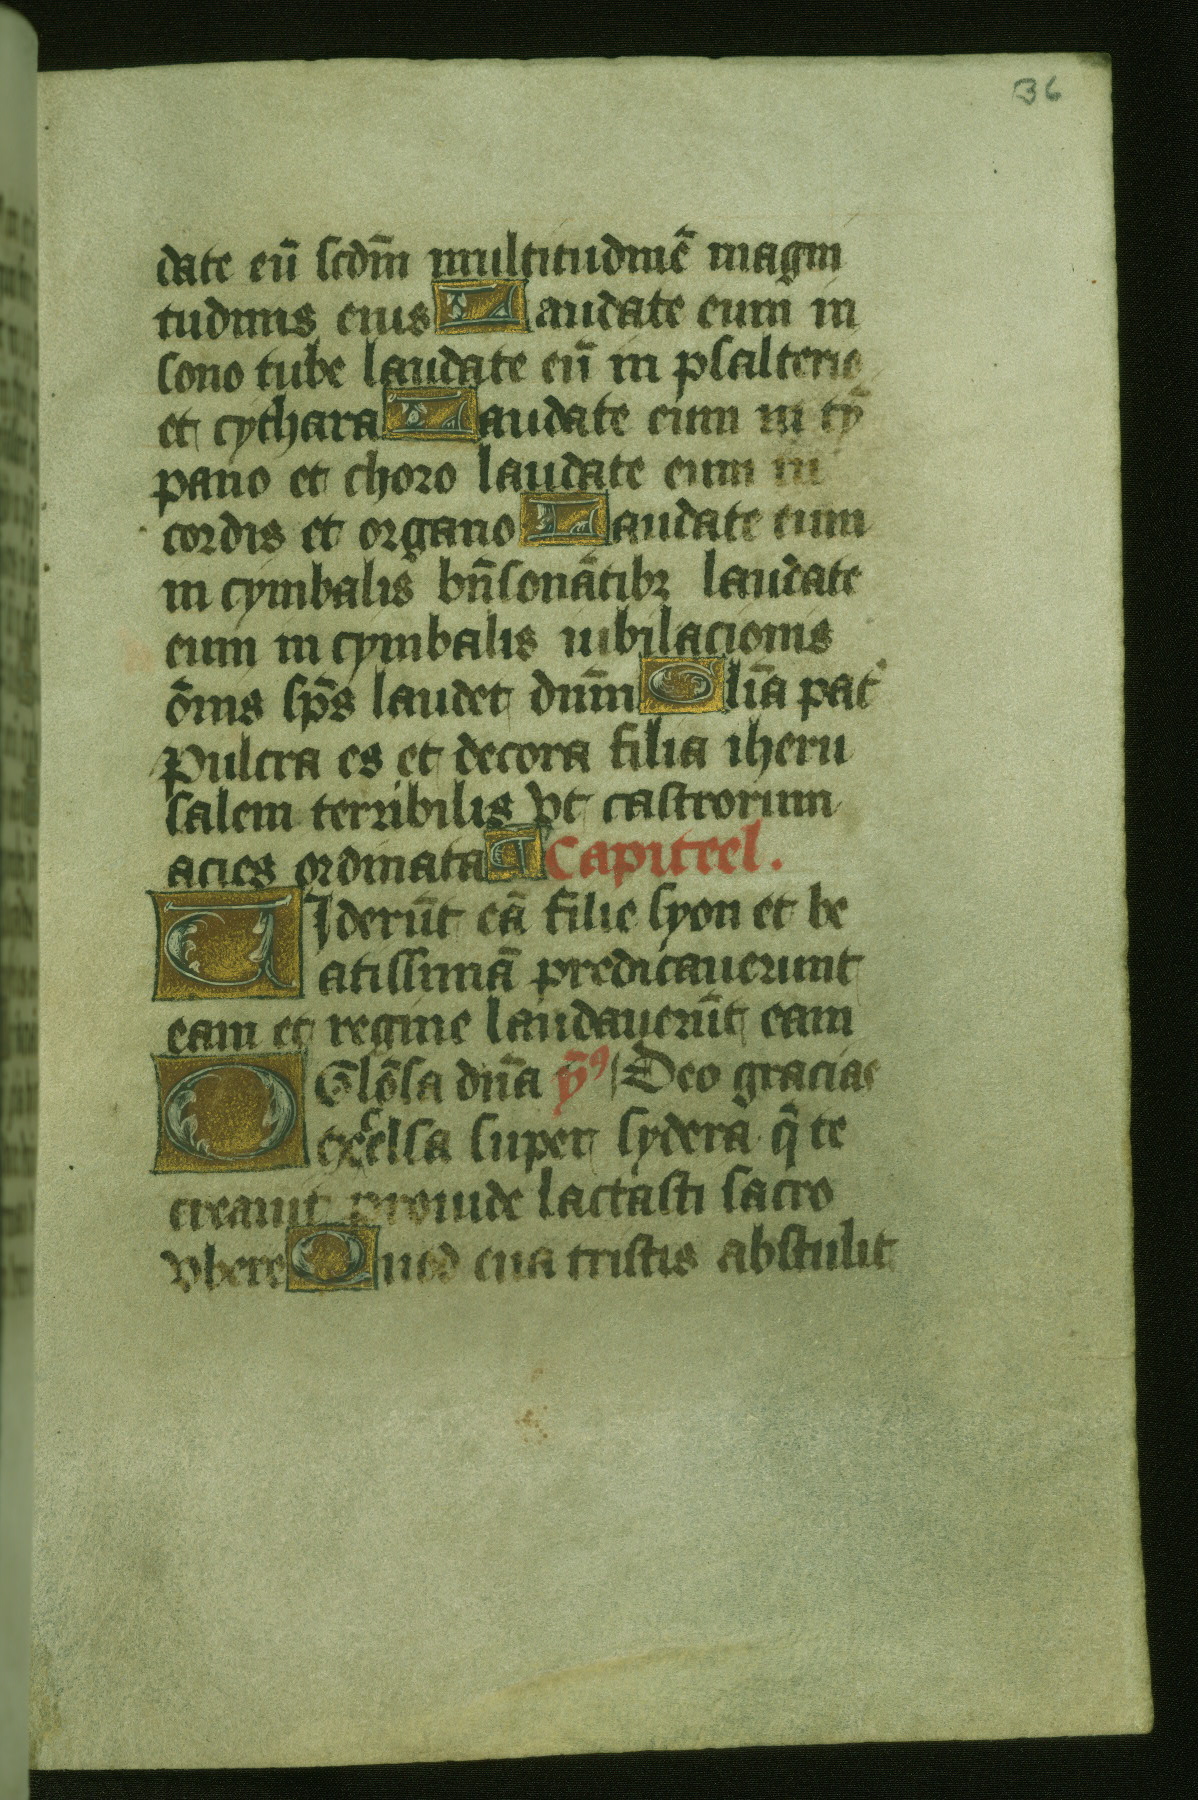 36
date eū scdm̄ multitudinē magni
tudinis eius Laudate eum in
sono tube laudate eū in psalterio
et cythara Laudate eum in tȳ
pano et choro laudate eum in
cordis et organo Laudate eum
in cymbalis bn̄sonātibꝫ laudate
eum in cymbalis iubilacionis
ōnis sp̄s laudet dnm̄ Glīa pat
Pulcra es et decora filia iheru
salem terribilis vt castrorum
acies ordinata Capiteel.
VIderūt eā filie syon et be
atissimā predicauerunt
eam et regine laudauerūt eam
O Glōsa dn̄a yꝰ Deo gracias
excelsa super sydera q̄ te
creauit prouide lactasti sacro
vbere Quod eua tristis abstulit